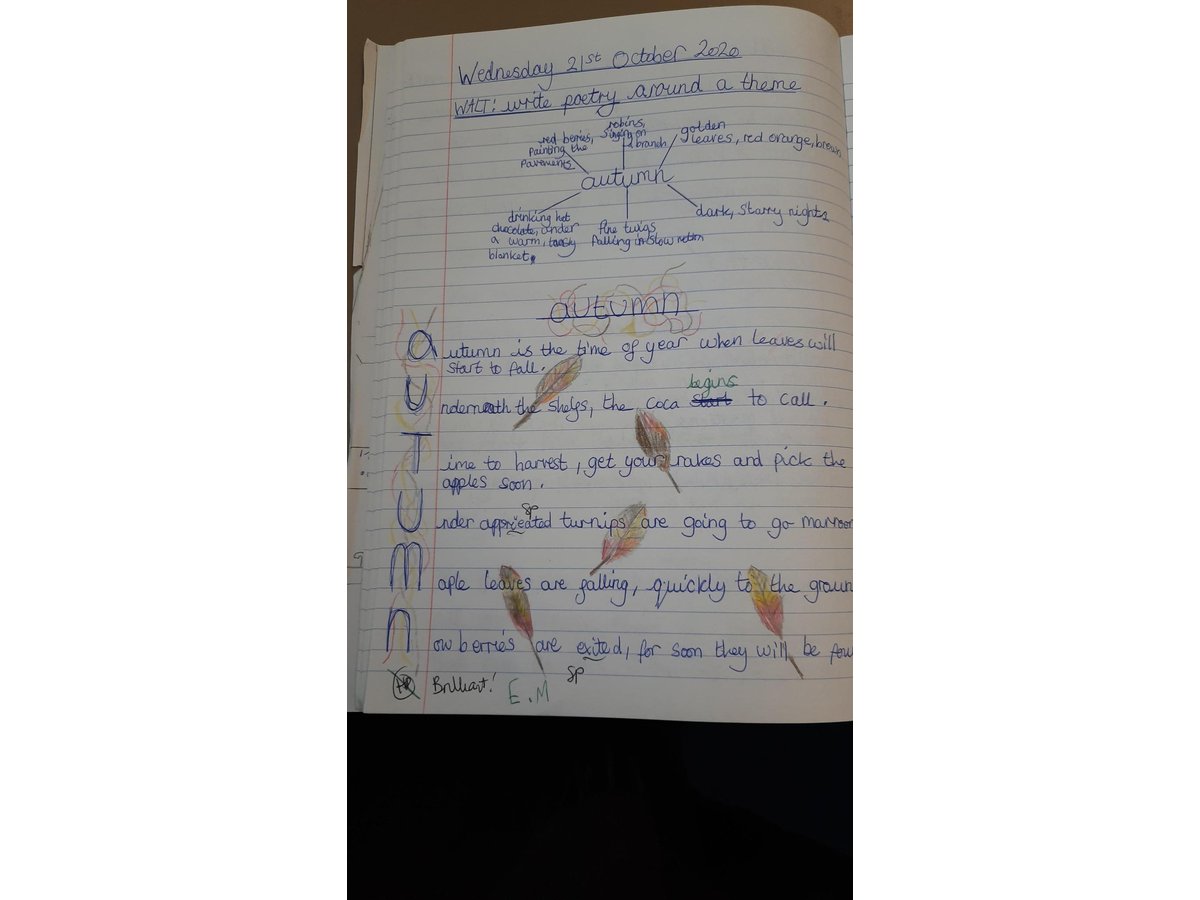 Wednesday 21st October 2020
WALT: write poetry around a theme
red berries,
Painting the
Pavements
robins,
Singing on
a branch
golden
leaves, red orange, brown
autumn
drinking hot
chocolate, under
a warm,
blanket.
fine twigs
falling in slow motion
dark, starry nights
autumn
autumn is the time of year when leaves will
start to fall.
begins
underneath the shelfs, the coca start to call.
Time to harvest, get your rakes and pick the
apples soon.
sp
under appricated turnips are going to go marroon
maple leaves are falling, quickly to the groun
now berries are exited, for soon they will be fow
sp
Brilliant!
E.M